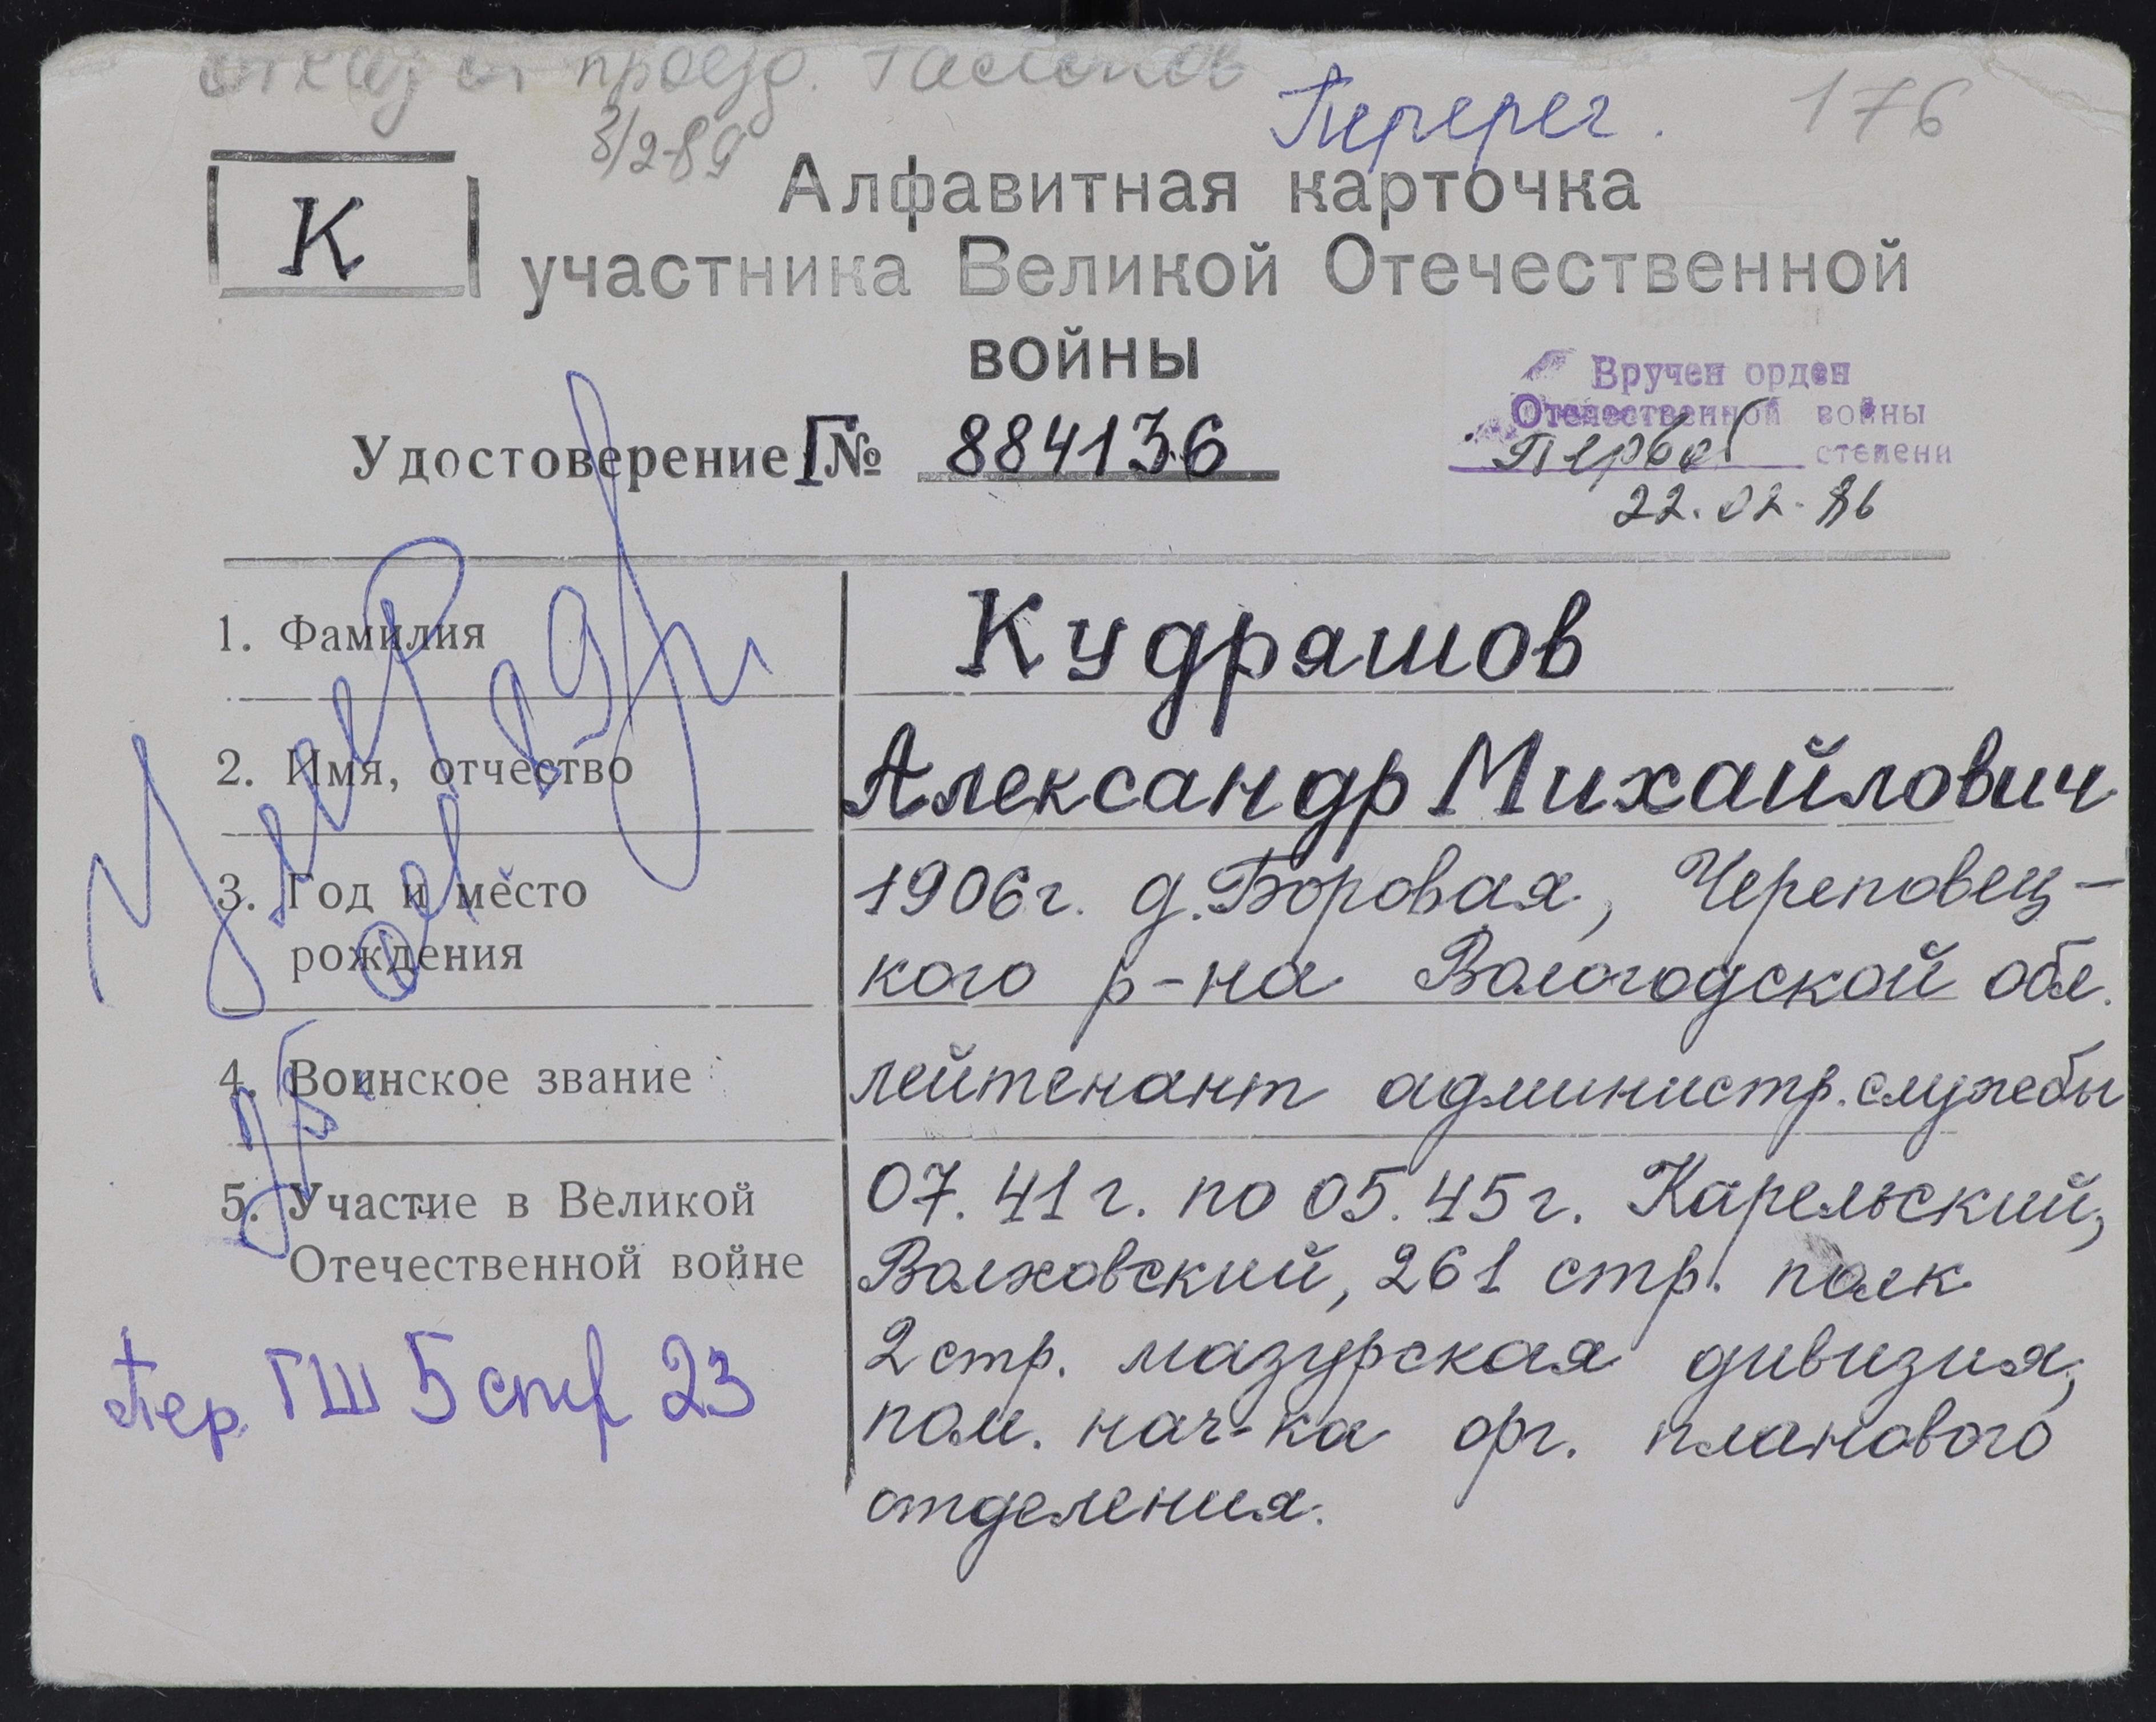 отказ от проезд. талонов
3/2-89
Перерег.
176
К
Алфавитная карточка
участника Великой Отечественной
войны
Вручен орден
Отечественной войны
Первой степени
22.02.86
Удостоверение Г№ 884136
1. Фамилия
Кудряшов
2. Имя, отчество
Александр Михайлович
3. Год и место
рождения
1906г. д.Боровая, Череповец-
кого р-на Вологодской обл.
4. Воинское звание
лейтенант администр. службы
5. Участие в Великой
Отечественной войне
07.41г. по 05.45г. Карельский,
Волховский, 261 стр. полк
2 стр. мазурская дивизия,
пом. нач-ка орг. планового
отделения.
Пер. ГШ 5 стр 23